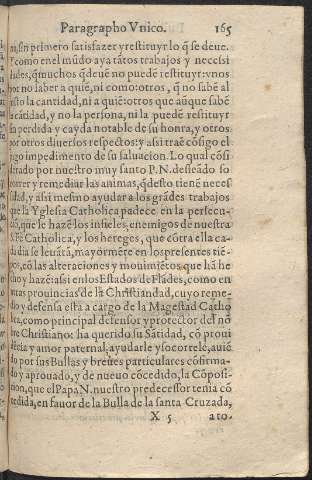 Paragrapho Vnico. 165
ni, sin primero satisfazer y restituyr lo q̃ se deue.
Y como en el mũdo aya tãtos trabajos y necessi
dades, q̃ muchos q̃ deuẽ no puedẽ restituyr: vnos
por no saber a quiẽ, ni como: otros, q̃ no sabẽ al
justo la cantidad, ni a quiẽ: otros que aũque sabẽ
la cãtidad, y no la persona, ni la puedẽ restituyr
sin perdida y cayda notable de su honra, y otros
por otros diuersos respectos: y assi trae cõsigo el
impedimento de su saluacion. Lo qual cõsi
derado por nuestro muy santo P. N. desseãdo so
correr y remediar las animas, q̃ desto tienẽ neces
sidad, y assi mesmo ayudar a los grãdes trabajos
que la Yglesia Catholica padece en la persecu-
ciõ, que le hazẽ los infieles, enemigos de nuestra
S. Fè Catholica, y los hereges, que cõtra ella ca-
da dia se leuãtã, mayormẽte en los presentes tiẽ-
pos, cõ las alteraciones y mouimiẽtos que hã he
cho y hazẽ assi en los Estados de Flãdes, como en
otras prouincias de la Christiandad, cuyo reme-
dio y defensa està a cargo de la Magestad Catho
lica, como principal defensor y protector del nõ
bre Christiano: ha querido su Sãtidad, cõ proui
dẽcia y amor paternal, ayudarle y socorrelle, auiẽ
do por sus Bullas y breues particulares cõfirma-
do y aprouado, y de nueuo cõcedido, la Cõposi-
cion, que el Papa N. nuestro predecessor tenia cõ
cedida, en fauor de la Bulla de la santa Cruzada,
X 5 ato-